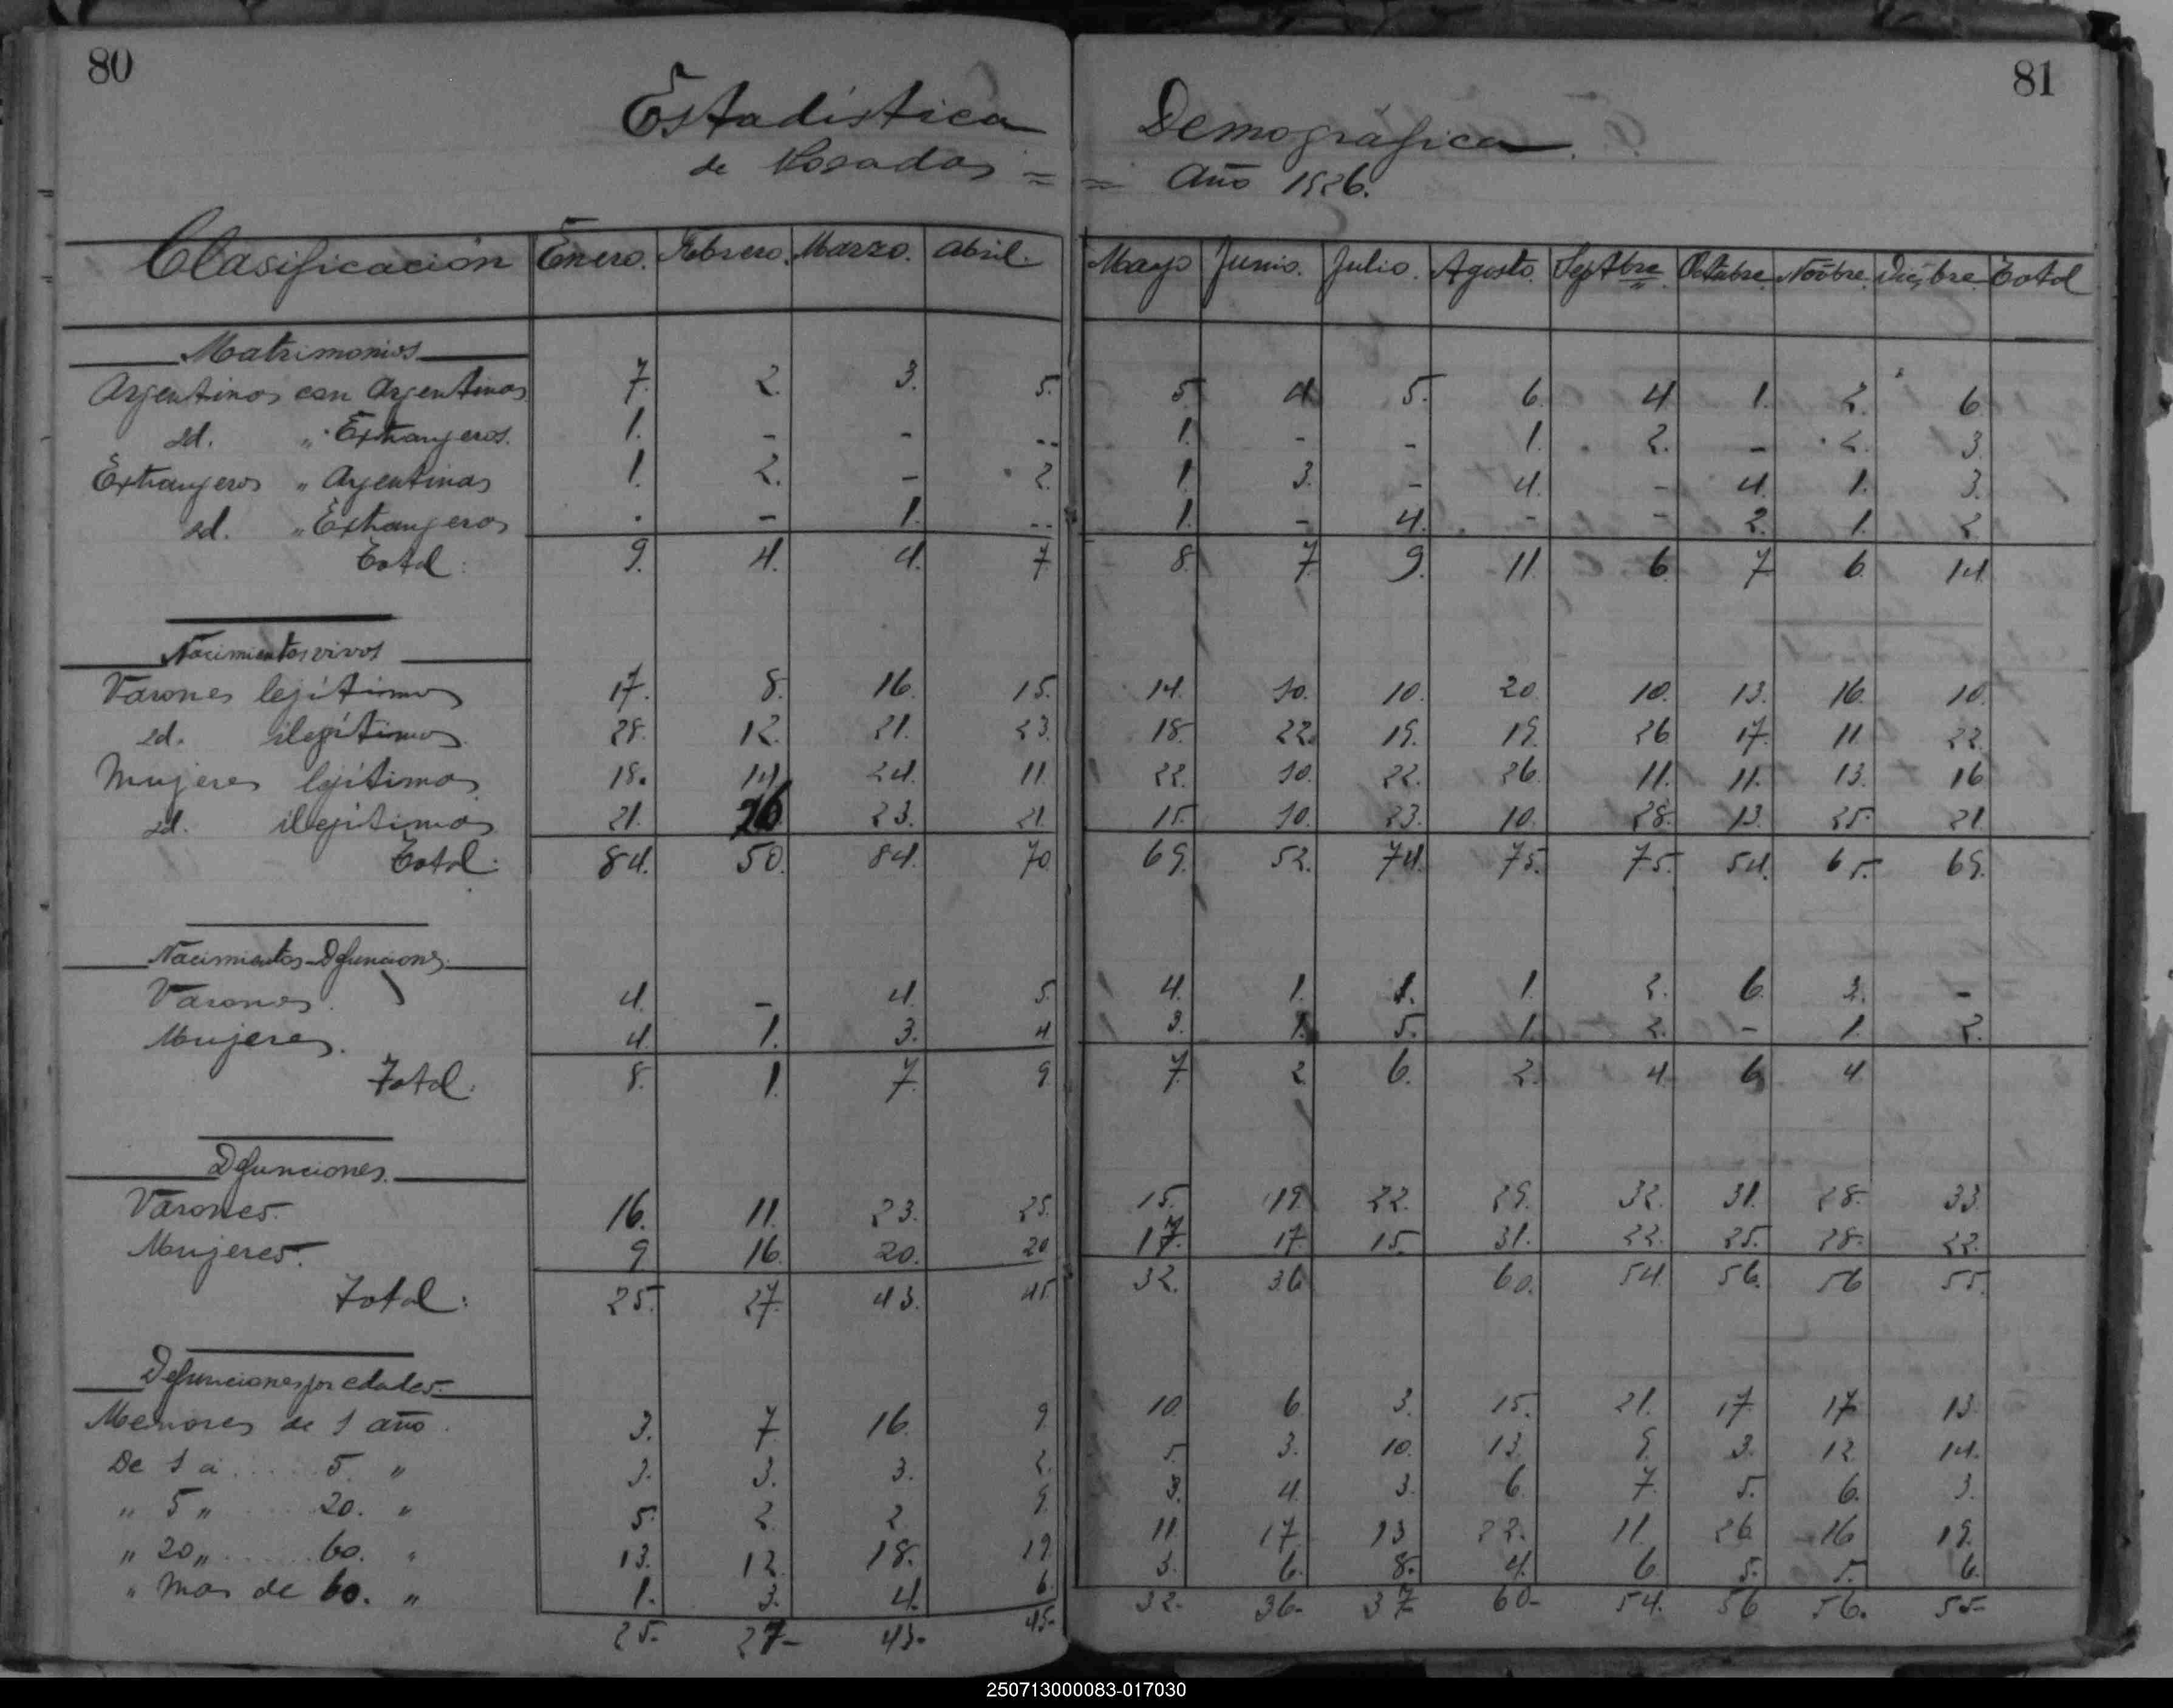 80
81
Estadística Demográfica.
de Posadas = = Año 1926.
Clasificación Enero. Febrero. Marzo. Abril. Mayo Junio. Julio. Agosto. Septbre. Octubre Novbre. Dicbre Total
Matrimonios
Argentinos con Argentinas 7. 2. 3. 5. 5. 4 5. 6. 4 1. 2. 6
id. " Extranjeros. 1. - - -- 1. - - 1. 2. - 2. 3.
Extranjeros " Argentinas 1. 2. - 2. 1. 3. - 4. - 4. 1. 3.
id. " Extranjeros . - 1. -- 1. - 4. - - 2. 1. 2
Total: 9. 4. 4. 7 8. 7 9. 11. 6. 7 6. 14.
Nacimientos vivos
Varones legítimos 17. 8. 16. 15. 14. 10. 10. 20. 10. 13. 16. 10.
id. ilegítimos 28. 12. 21. 23. 18. 22. 19. 19. 26. 17. 11. 22.
Mujeres legítimas 18. 14. 24. 11. 22. 10. 22. 26. 11. 11. 13. 16
id. ilegítimas 21. 16 23. 21. 15. 10. 23. 10. 28. 13. 25. 21.
Total: 84. 50. 84. 70 69. 52. 74. 75. 75. 54. 65. 69.
Nacimientos-Defunciones.
Varones 4. - 4. 5. 4. 1. 1. 1. 2. 6. 3. -
Mujeres. 4. 1. 3. 4 3. 1. 5. 1. 2. - 1. 2.
Total: 8. 1. 7. 9. 7. 2 6. 2. 4. 6 4.
Defunciones.
Varones. 16. 11. 23. 25. 15. 19. 22. 29. 32. 31. 28. 33.
Mujeres. 9. 16. 20. 20. 17. 17. 15. 31. 22. 25. 28. 22.
Total: 25. 27. 43. 45. 32. 36 60. 54. 56. 56 55.
Defunciones por edades.
Menores de 1 año. 3. 7. 16. 9. 10. 6. 3. 15. 21. 17. 17. 13.
De 1 a ..... 5. " 3. 3. 3. 2. 5. 3. 10. 13. 9. 3. 12. 14.
" 5 " .... 20. " 5. 2. 2. 9. 3. 4. 3. 6. 7. 5. 6. 3.
" 20 " ..... 60. " 13. 12. 18. 19. 11. 17. 13 22. 11. 26. 16 19.
" mas de 60. " 1. 3. 4. 6. 3. 6. 8. 4. 6. 5. 5. 6.
25.- 27- 43.- 45.- 32.- 36.- 37 60- 54. 56 56. 55-
250713000083-017030